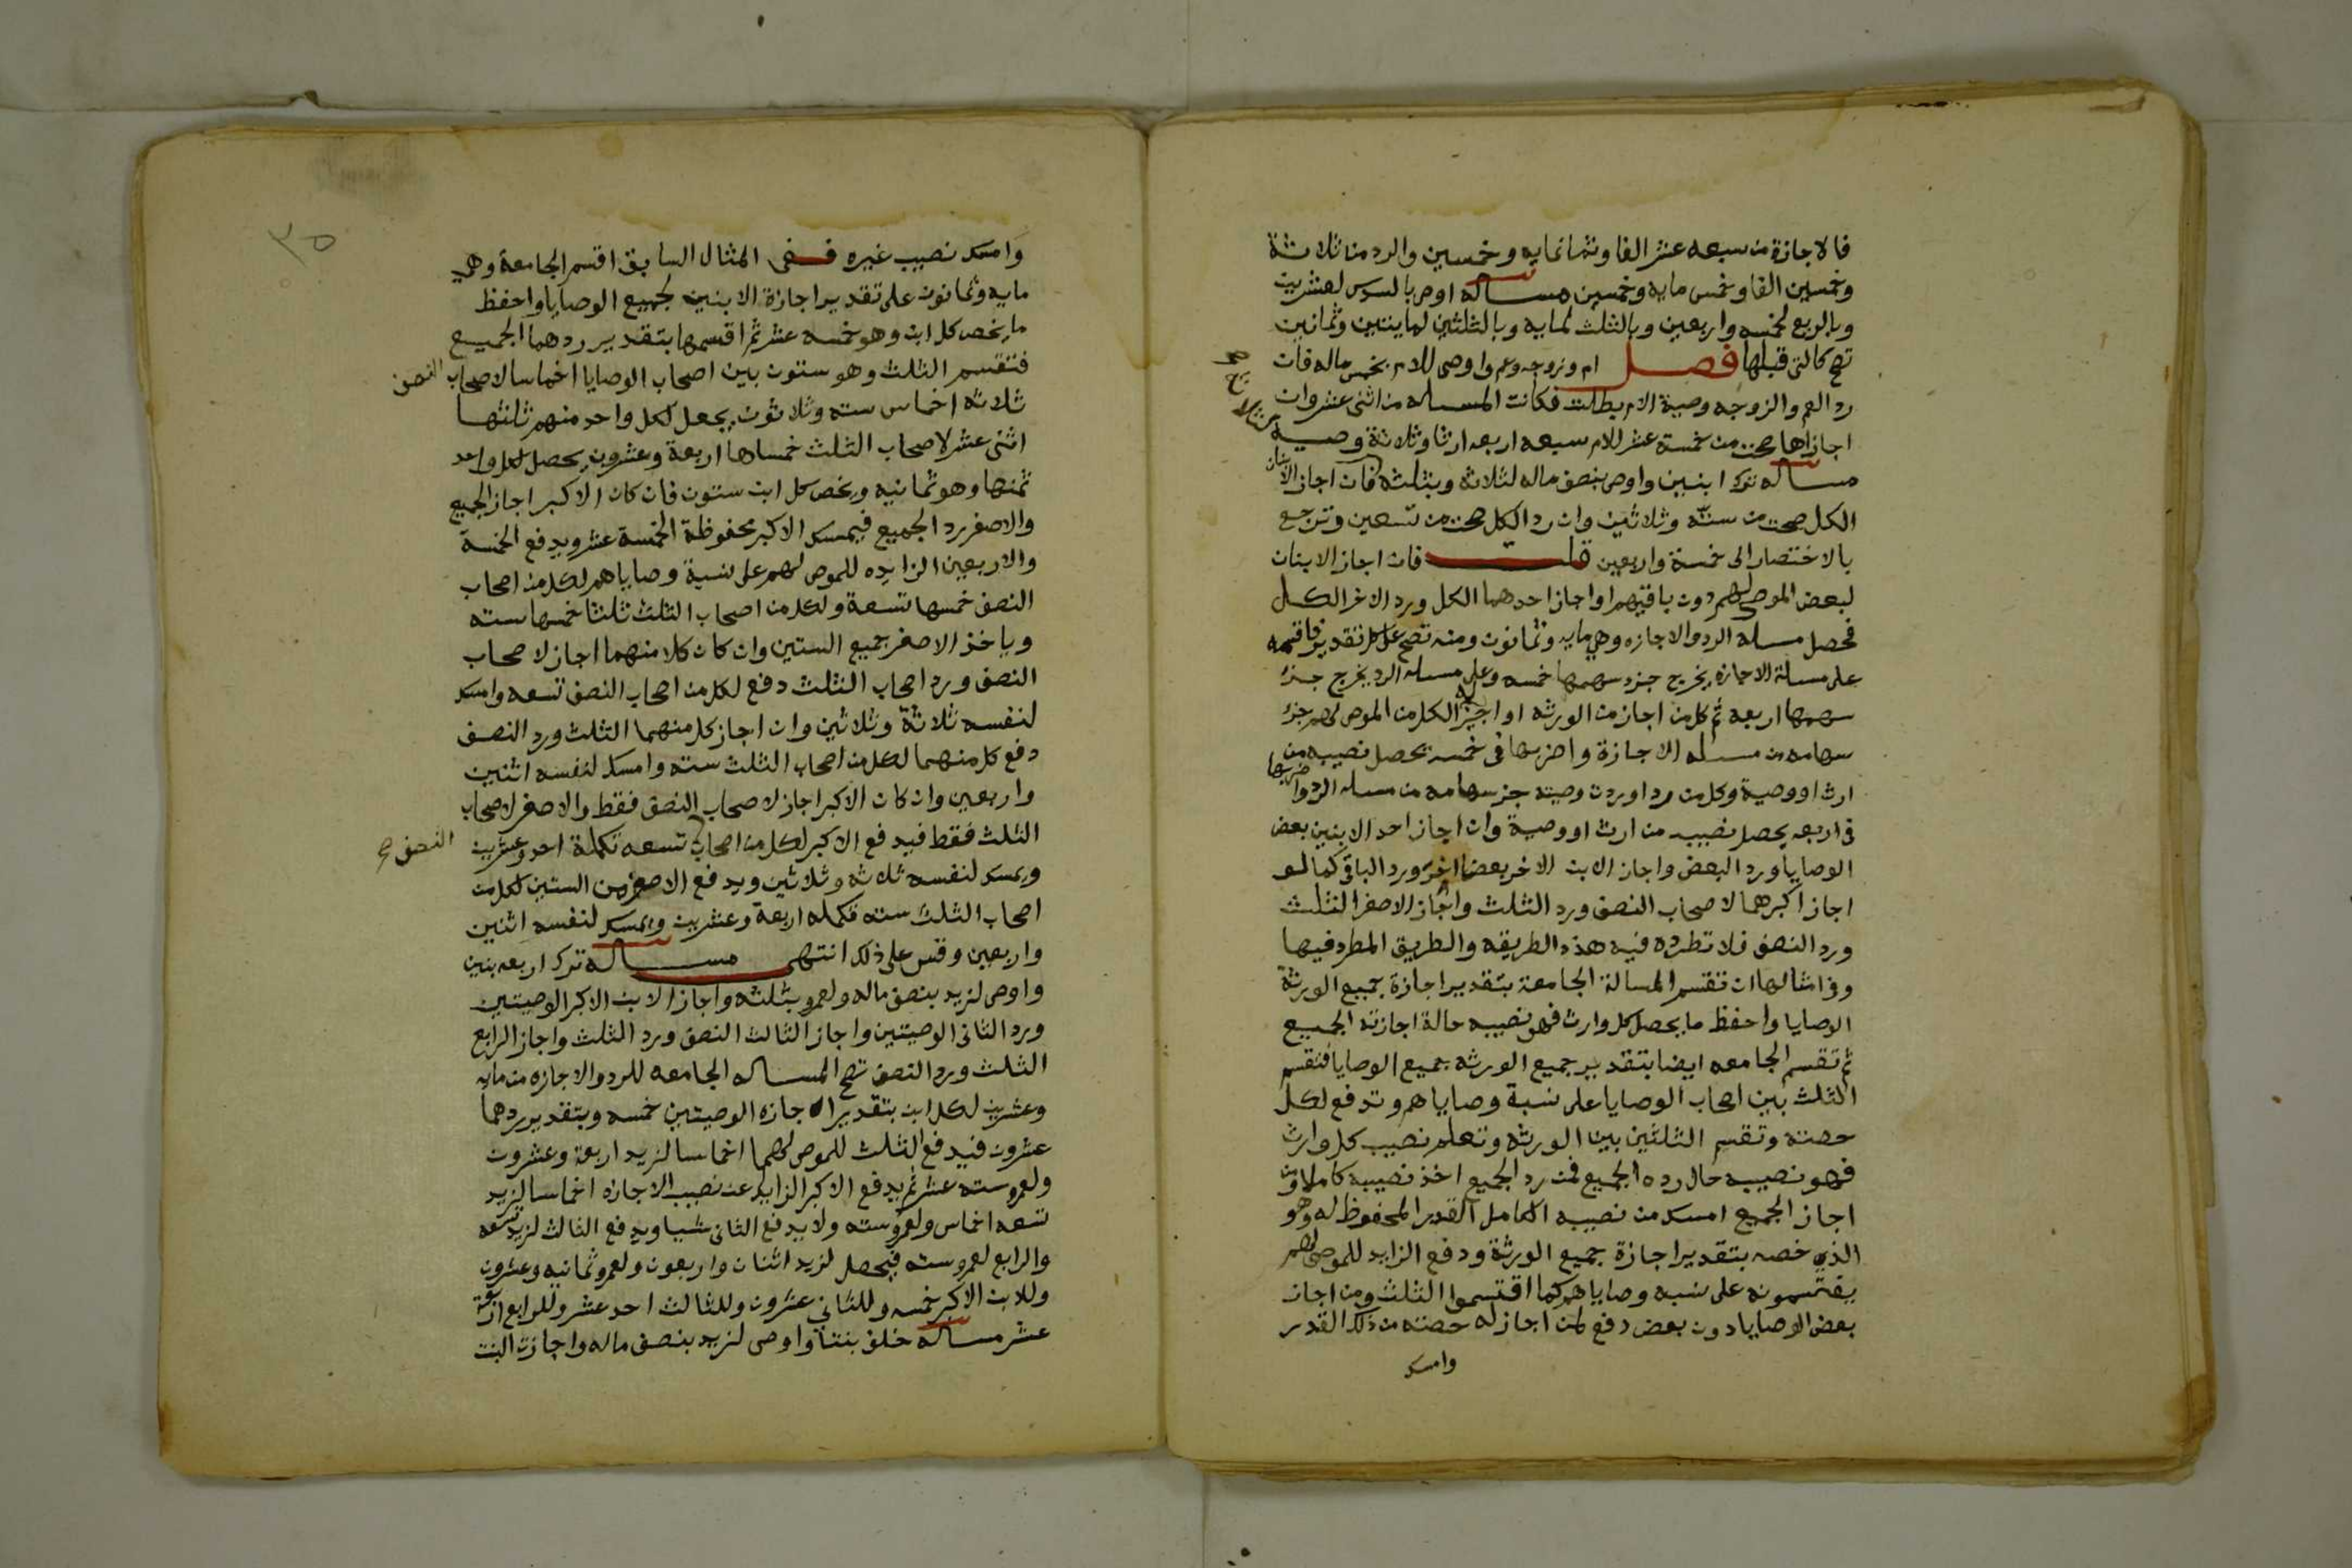 فالاجازة من سبعه عشر الفا وثمانمايه وخمسين والرد من ثلاثة
وخمسين الفا وخمس مايه وخمسين مساله اوصى بالسدس لعشرين
وبالربع لخمسه واربعين وبالثلث لمايه وبالثلثين لمايتين وثمانين
تصح كالتى قبلها فصل ام وزوجه وعم واوصى للام بخمس ماله فان
رد العم والزوجه وصية الام بطلت فكانت المسله من اثنى عشر وان
اجازاها صحت من خمسة عشر للام سبعه اربعه ارثا وثلاثة وصيه
مساله ترك ابنين واوصى بنصف ماله لثلاثه وبثلثه فان اجاز الابنان
الكل صحت من سته وثلاثين وان رد الكل صحت من تسعين وترجع
بالاختصار الى خمسة واربعين قلت فان اجاز الابنان
لبعض الموصى لهم دون باقيهم او اجاز احدهما الكل ورد الاخر الكل
فحصل مسله الرد والاجازه وهي مايه وثمانون ومنه تصح على كل تقدير فاقسمه
على مسلة الاجازه يخرج جزء سهمها خمسه وعلى مسله الرد يخرج جزء
سهمها اربعه ثم كل من اجاز من الورثه او اجيز له الكل من الموصى لهم جزء
سهامه من مسله الاجازة واضربها فى خمسه يحصل نصيبه من
ارث او وصية وكل من رد او ردت وصيته جز سهامه من مسله الرد واضربها
فى اربعه يحصل نصيبه من ارث او وصية وان اجاز احد الابنين بعض
الوصايا ورد البعض واجاز الابن الاخر بعضا اخر ورد الباقى كما لو
اجاز اكبرهما لاصحاب النصف ورد الثلث واجاز الاصغر الثلث
ورد النصف فلا تطرد فيه هذه الطريقه والطريق المطرد فيها
وفى امثالها ان تقسم المسالة الجامعة بتقدير اجازة جميع الورثة
الوصايا واحفظ ما يحصل كل وارث فهو نصيبه حالة اجازته الجميع
ثم تقسم الجامعه ايضا بتقدير جميع الورثه جميع الوصايا فتقسم
الثلث بين اصحاب الوصايا على نسبة وصاياهم وتدفع لكل
حصته وتقسم الثلثين بين الورثه وتعلم نصيب كل وارث
فهو نصيبه حال رده الجميع فمن رد الجميع اخذ نصيبه كاملا ومن
اجاز الجميع امسك من نصيبه الكامل القدر المحفوظ له وهو
الذي خصه بتقدير اجازة جميع الورثة ودفع الزايد للموصى لهم
يقتسمونه على نسبه وصاياهم كما اقتسموا الثلث ومن اجاز
بعض الوصايا دون بعض دفع لمن اجاز له حصته من ذلك القدر
وامسك
٣٥
وامسك نصيب غيره ففى المثال السابق اقسم الجامعة وهي
مايه وثمانون على تقدير اجازة الابنين لجميع الوصايا واحفظ
ما يخص كل ابن وهو خمسه عشر ثم اقسمها بتقدير ردهما الجميع
فتقسم الثلث وهو ستون بين اصحاب الوصايا اخماسا لاصحاب النصف
ثلاثه اخماس سته وثلاثون يجعل لكل واحد منهم ثلثها
اثنى عشر لاصحاب الثلث خمساها اربعة وعشرون يحصل لكل واحد
ثمنها وهو ثمانيه ويخص كل ابن ستون فان كان الاكبر اجاز الجميع
والاصغر رد الجميع فيمسك الاكبر محفوظة الخمسة عشر ويدفع الخمسة
والاربعين الزايده للموصى لهم على نسبة وصاياهم لكل من اصحاب
النصف خمسها تسعة ولكل من اصحاب الثلث ثلثا خمسها سته
وياخذ الاصغر جميع الستين وان كان كلا منهما اجاز لاصحاب
النصف ورد اصحاب الثلث دفع لكل من اصحاب النصف تسعه وامسك
لنفسه ثلاثة وثلاثين وان اجاز كل منهما الثلث ورد النصف
دفع كل منهما لكل من اصحاب الثلث سته وامسك لنفسه اثنين
واربعين وان كان الاكبر اجاز لاصحاب النصف فقط والاصغر لاصحاب
الثلث فقط فيدفع الاكبر لكل من اصحاب النصف صح تسعه تكملة احد وعشرين
ويمسك لنفسه ثلاثه وثلاثين ويدفع الاصغر من الستين لكل من
اصحاب الثلث سته تكمله اربعة وعشرين ويمسك لنفسه اثنين
واربعين وقس على ذلك انتهى مساله ترك اربعه بنين
واوصى لزيد بنصف ماله ولعمرو بثلثه واجاز الابن الاكبر الوصيتين
ورد الثانى الوصيتين واجاز الثالث النصف ورد الثلث واجاز الرابع
الثلث ورد النصف تصح المساله الجامعه للرد والاجازه من مايه
وعشرين لكل ابن بتقدير الاجازه الوصيتين خمسه وبتقدير ردهما
عشرون فيدفع الثلث للموصى لهما اخماسا لزيد اربعة وعشرون
ولعمرو سته عشر ثم يدفع الاكبر الزايد عن نصيب الاجازه اخماسا لزيد
تسعه اخماس ولعمرو سته ولا يدفع الثانى شيا ويدفع الثالث لزيد تسعه
والرابع لعمرو سته فيحصل لزيد اثنان واربعون ولعمرو ثمانيه وعشرون
وللابن الاكبر خمسه وللثاني عشرون وللثالث احد عشر وللرابع اربعة
عشر مساله خلف بنتا واوصى لزيد بنصف ماله واجازت البنت